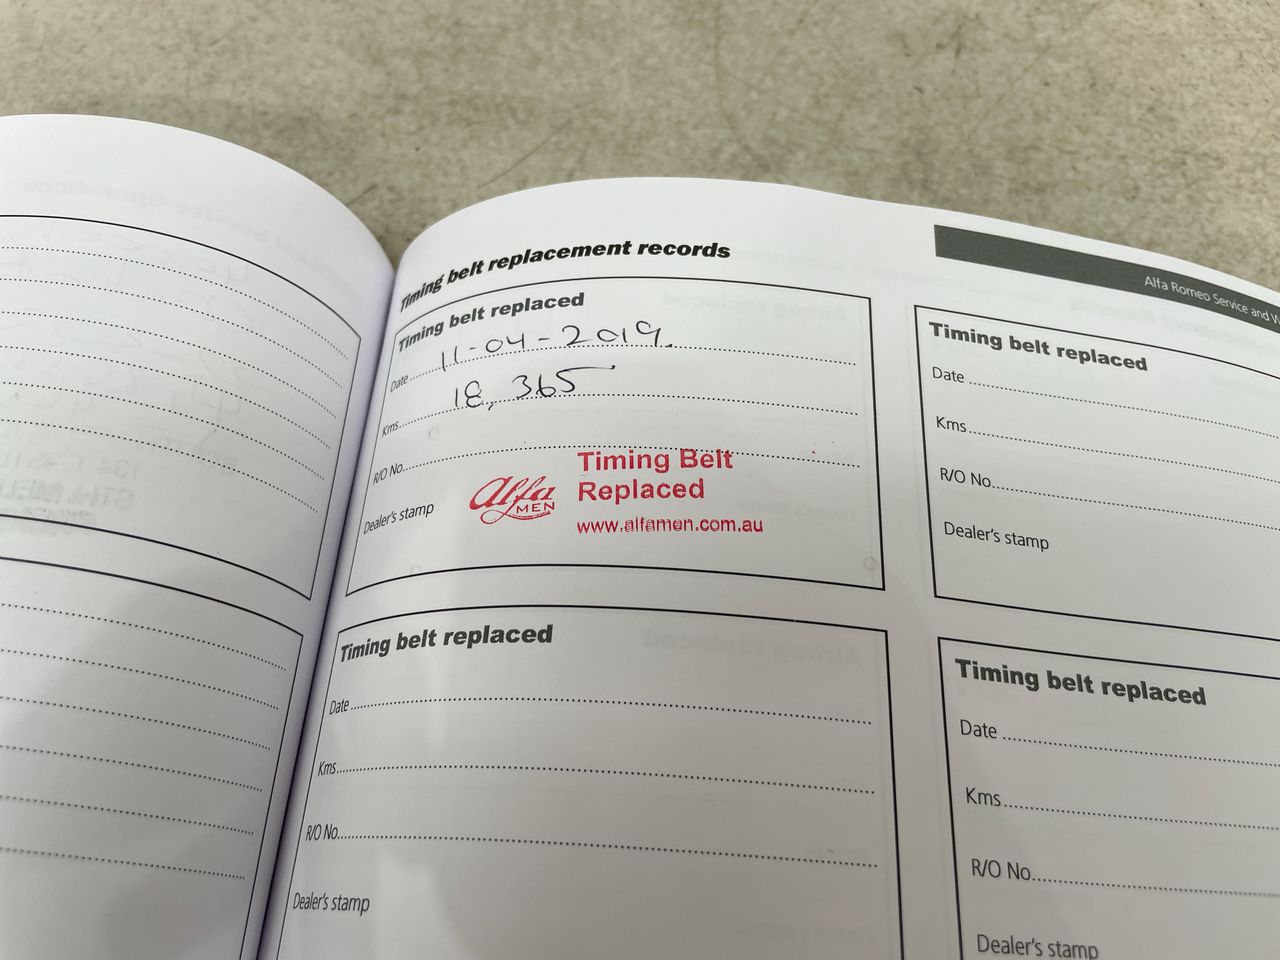 Timing belt replacement records
Timing belt replaced
Date 11-04-2019.
Kms 18,365
R/O No.
Dealer's stamp
Alfa
MEN
Timing Belt
Replaced
www.alfamen.com.au
Timing belt replaced
Date
Kms
R/O No.
Dealer's stamp
Alfa Romeo Service and W
Timing belt replaced
Date
Kms
R/O No.
Dealer's stamp
Timing belt replaced
Date
Kms
R/O No.
Dealer's stamp